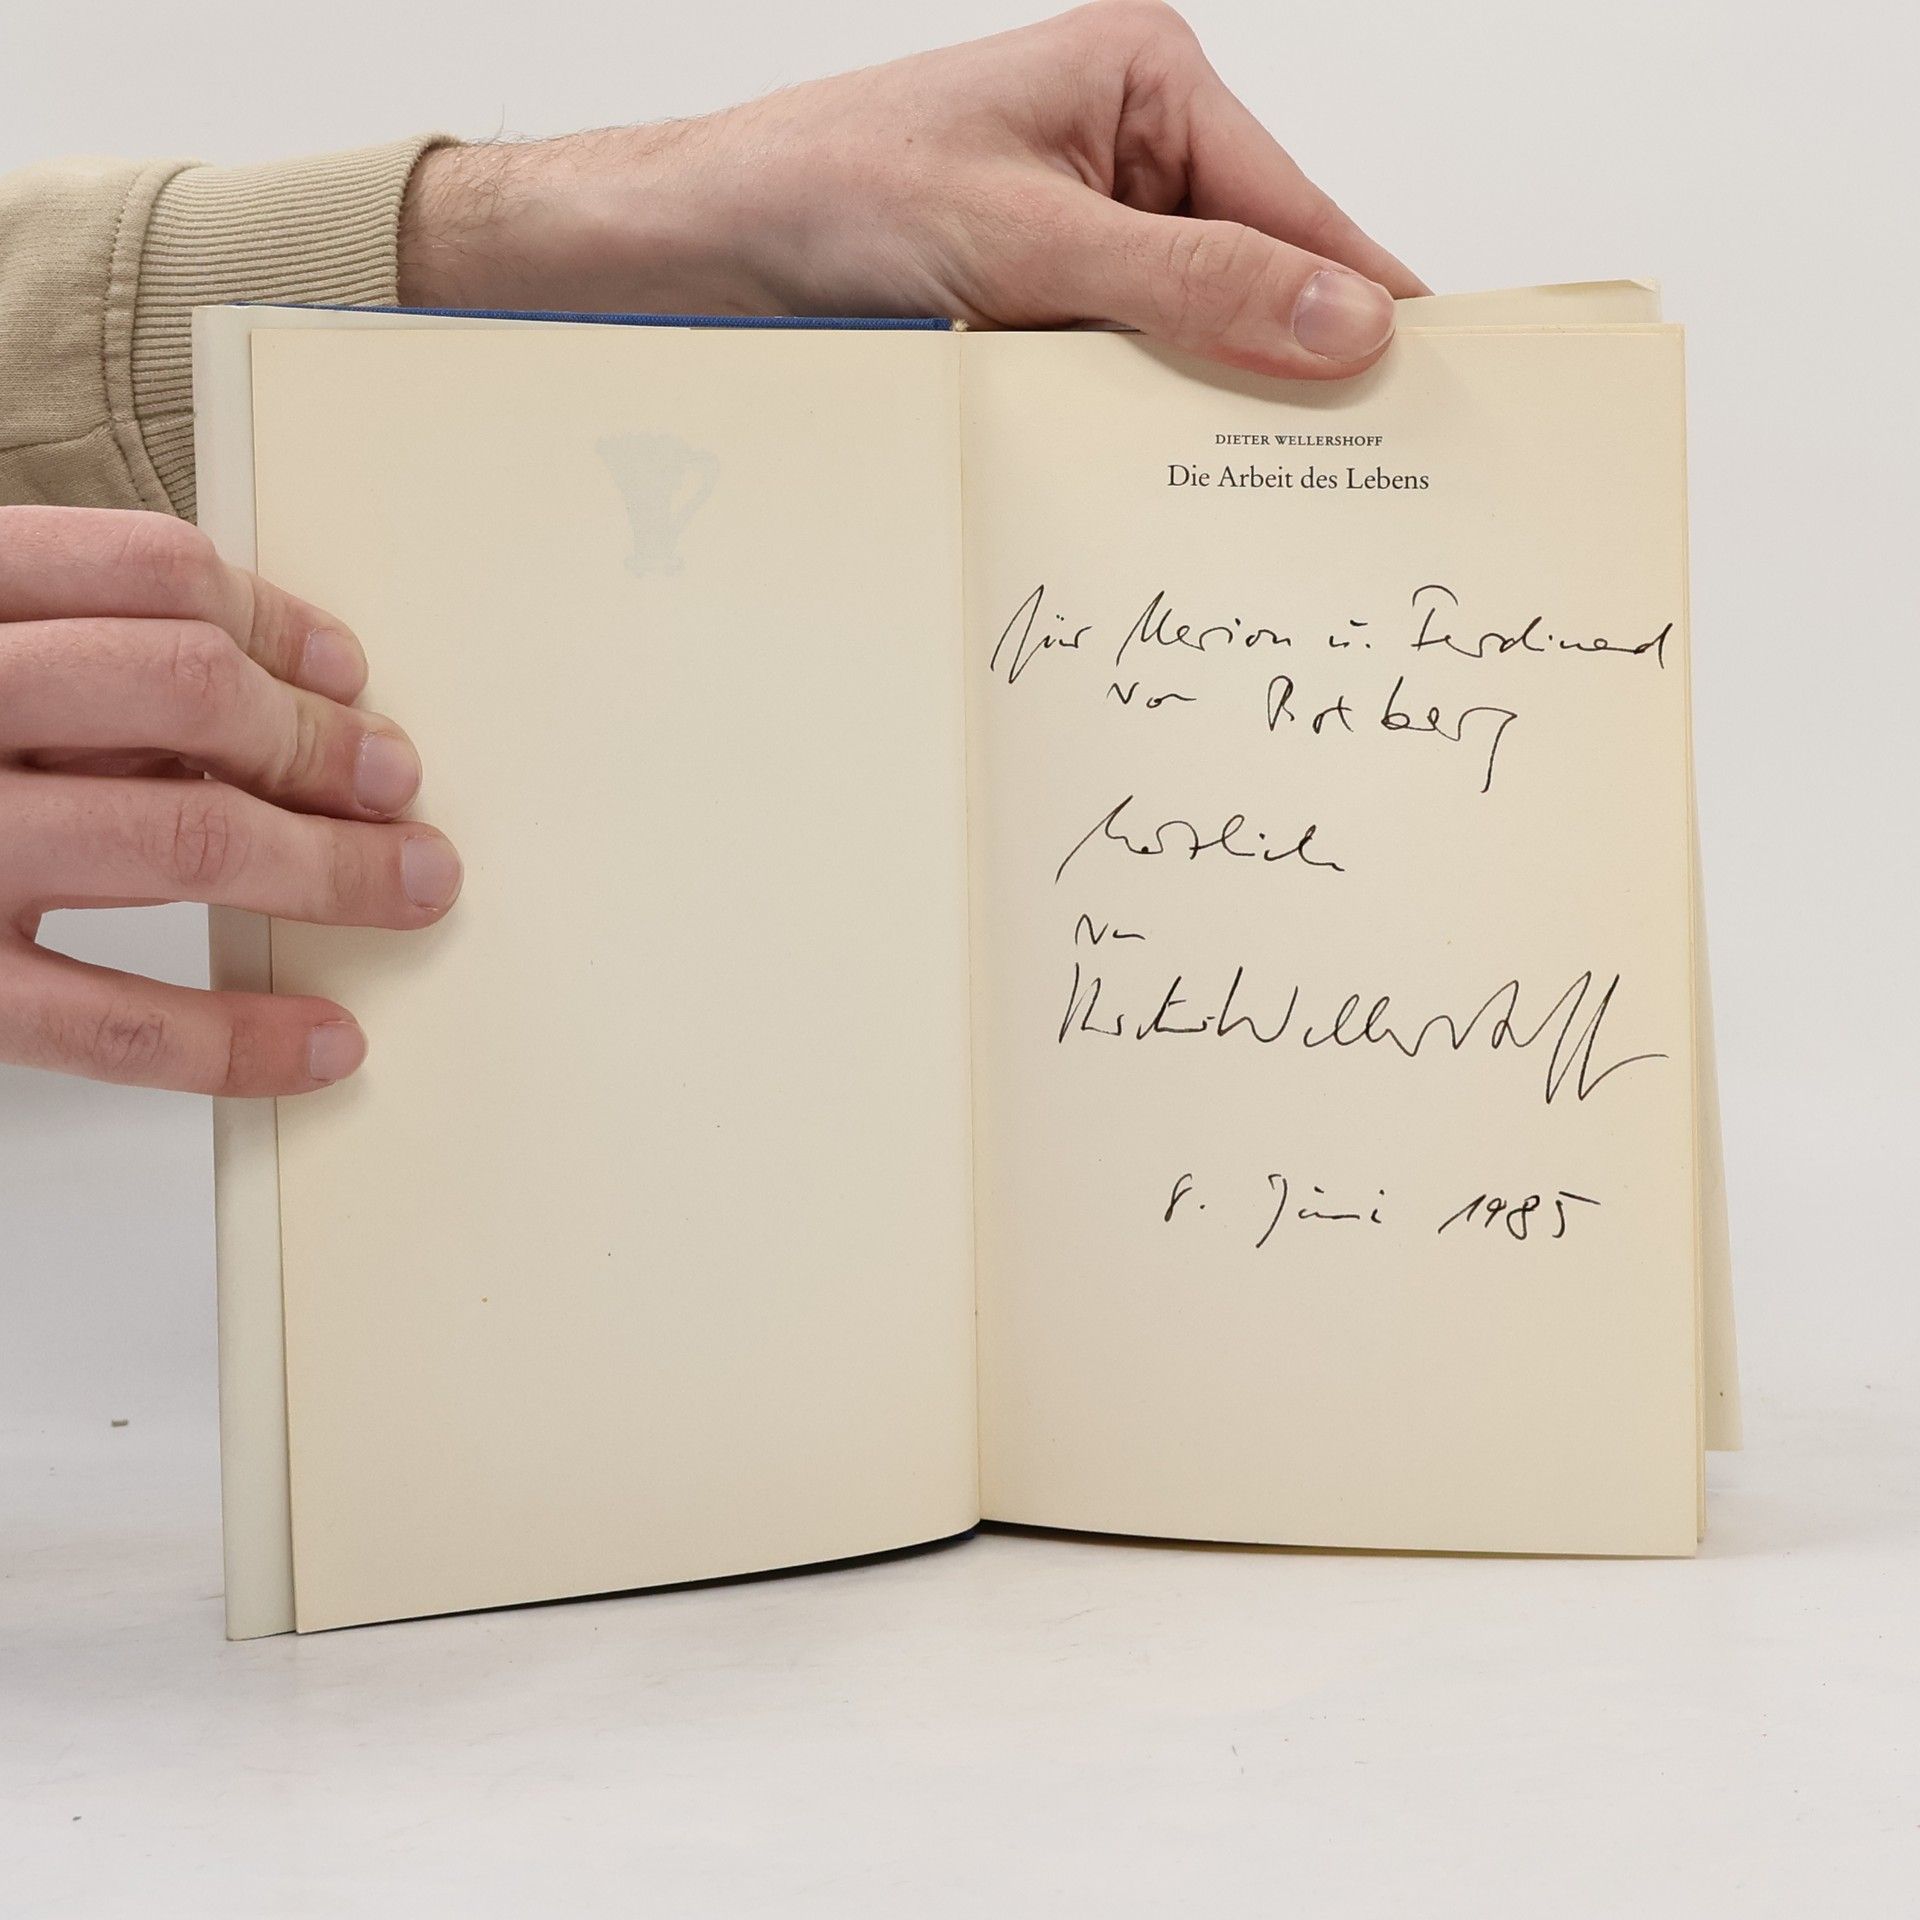 DIETER WELLERSHOFF
Die Arbeit des Lebens
für Marion u. Ferdinand
von Rotberg
herzlich
von
Dieter Wellershoff
8. Juni 1985